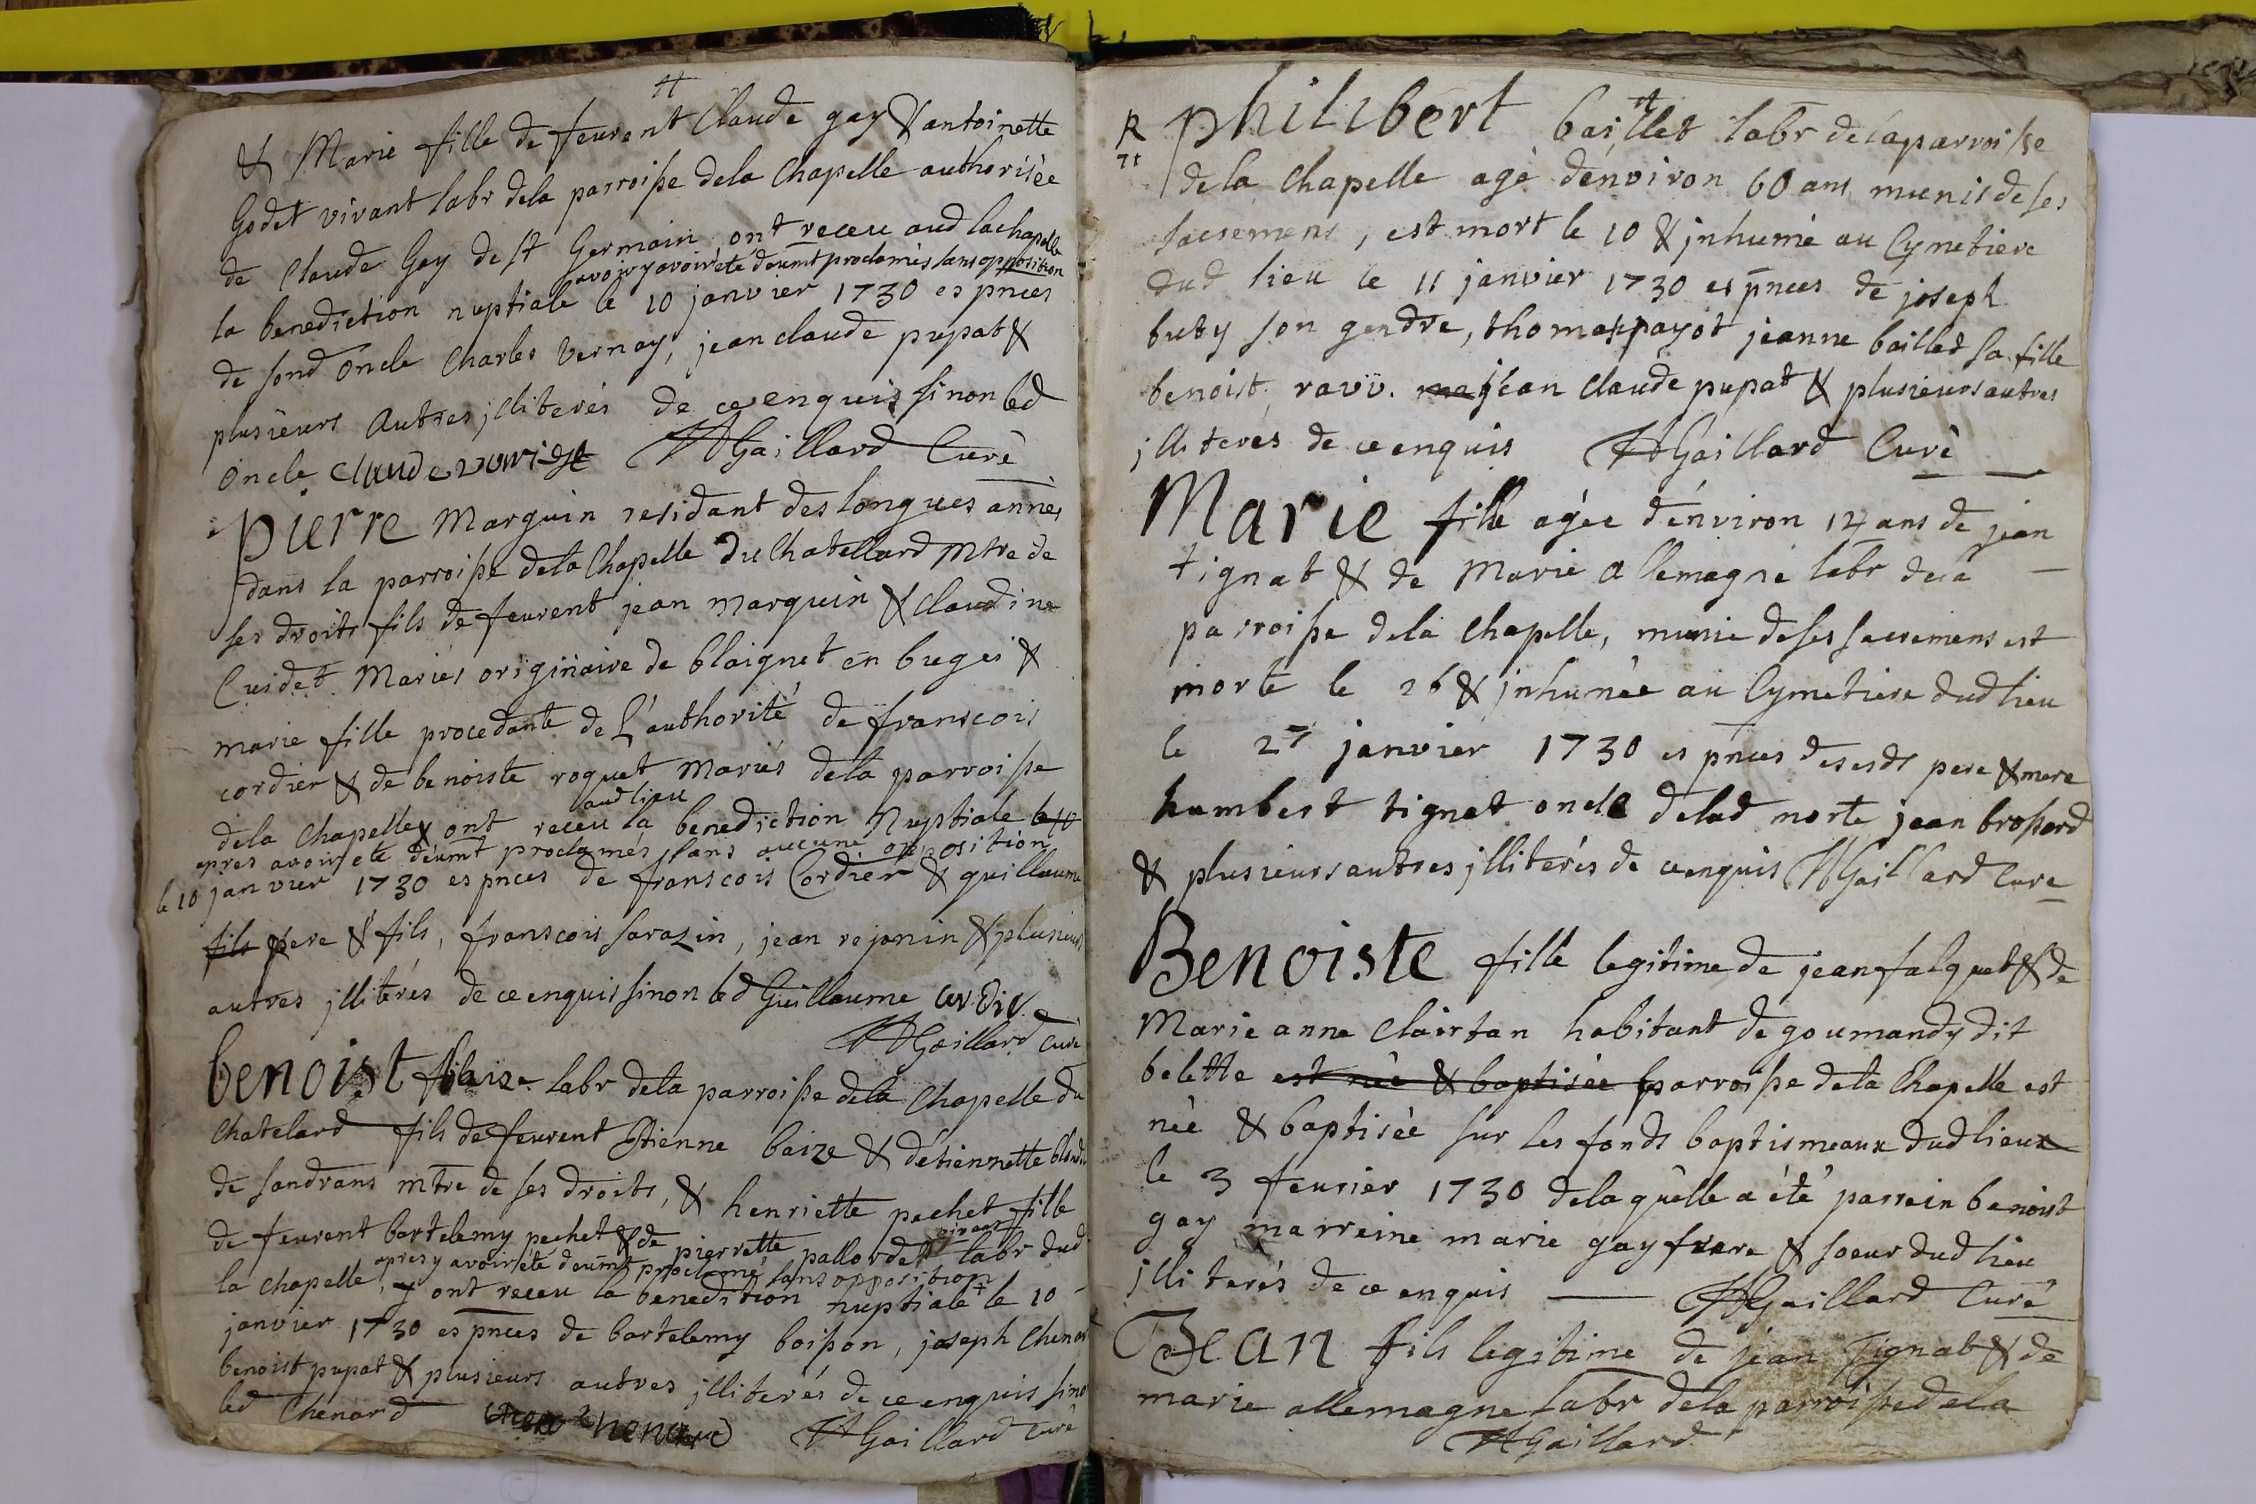 & Marie fille de feurent Claude gay & antoinette
Godet vivant labr dela parroisse dela Chapelle authorisée
de Claude Gay de st Germain ont receu aud lachapelle
avoir été deumt proclamés sans opposition
la benediction nuptiale le 10 janvier 1730 es pnces
de sond oncle Charles Vernay, jean claude pupat &
plusieurs Autres jlliterés de ce enquis sinon led
oncle Claude HGaillard Curé
Pierre Marguin residant des longues années
dans la parroisse dela Chapelle du Chatellard Mtre de
ses droits fils de feurent jean marguin & Claudine
Cuidet Mariés originaire de blaignet en bugei &
marie fille procedante de L'authorité de franscois
cordier & de benoiste roquet Mariés dela parroisse
aud lieu
dela Chapelle & ont receu la benediction Nuptiale le 10
apres avoir eté deumt proclamés sans aucune opposition
le 10 janvier 1730 es pnces de franscois Cordier & guillaume
fils pere & fils, franscois sarazin, jean rejanin & plusieurs
autres jlliterés de ce enquis sinon led Guillaume cordie
HGaillard Curé
benoist baize labr dela parroisse dela Chapelle du
Chatelard fils de feurent Etienne baize & détiennette
de sandrans mtre de ses droits, & henriette pechet fille
vivant
de feurent bartelemy pechet & de pierrette pallordet labr dud
apres y avoir été deumt proclamé sans opposition
la Chapelle, y ont receu la benedition nuptiale le 10
janvier 1730 es pnces de bartelemy boisson, joseph Chenar
benoist pupat & plusieurs autres jlliterés de ce enquis sino
led Chenard chenard HGaillard Curé
R
Philibert baillet labr de laparroisse
dela Chapelle agé dénviron 60 ans munis de ses
sacremens, est mort le 10 & jnhumé au Cymetiere
dud lieu le 11 janvier 1730 es pnces de joseph
buty son gendre, thomas payot jeanne baillet sa fille
benoist ravü. jean Claude pupat & plusieurs autres
jlliteres de ce enquis HGaillard Curé
Marie fille agée d'énviron 14 ans de jean
tignat & de Marie allemagne labr dela
parroisse dela Chapelle, munie de ses sacremens est
morte le 26 & jnhumée au Cymetiere dud lieu
le 27 janvier 1730 es pnces desesdt pere & mere
humbert tignat oncle delad morte jean brossard
& plusieurs autres jlliterés de ce enquis HGaillard Cure
Benoiste fille legitime de jean falquet & de
Marie anne Clairtan habitant de goumandy dit
belette est née & baptisée parroisse dela Chapelle est
née & baptisée sur les fonds baptismeaux dud lieux
le 3 feurier 1730 delaquèlle a été parrein benoist
gay marreine marie gay frere & soeur dud lieu
jlliterés de ce enquis HGaillard Curé
Jean fils legitime de jean Tignat & de
marie allemagne labr dela parroisse dela
HGaillard